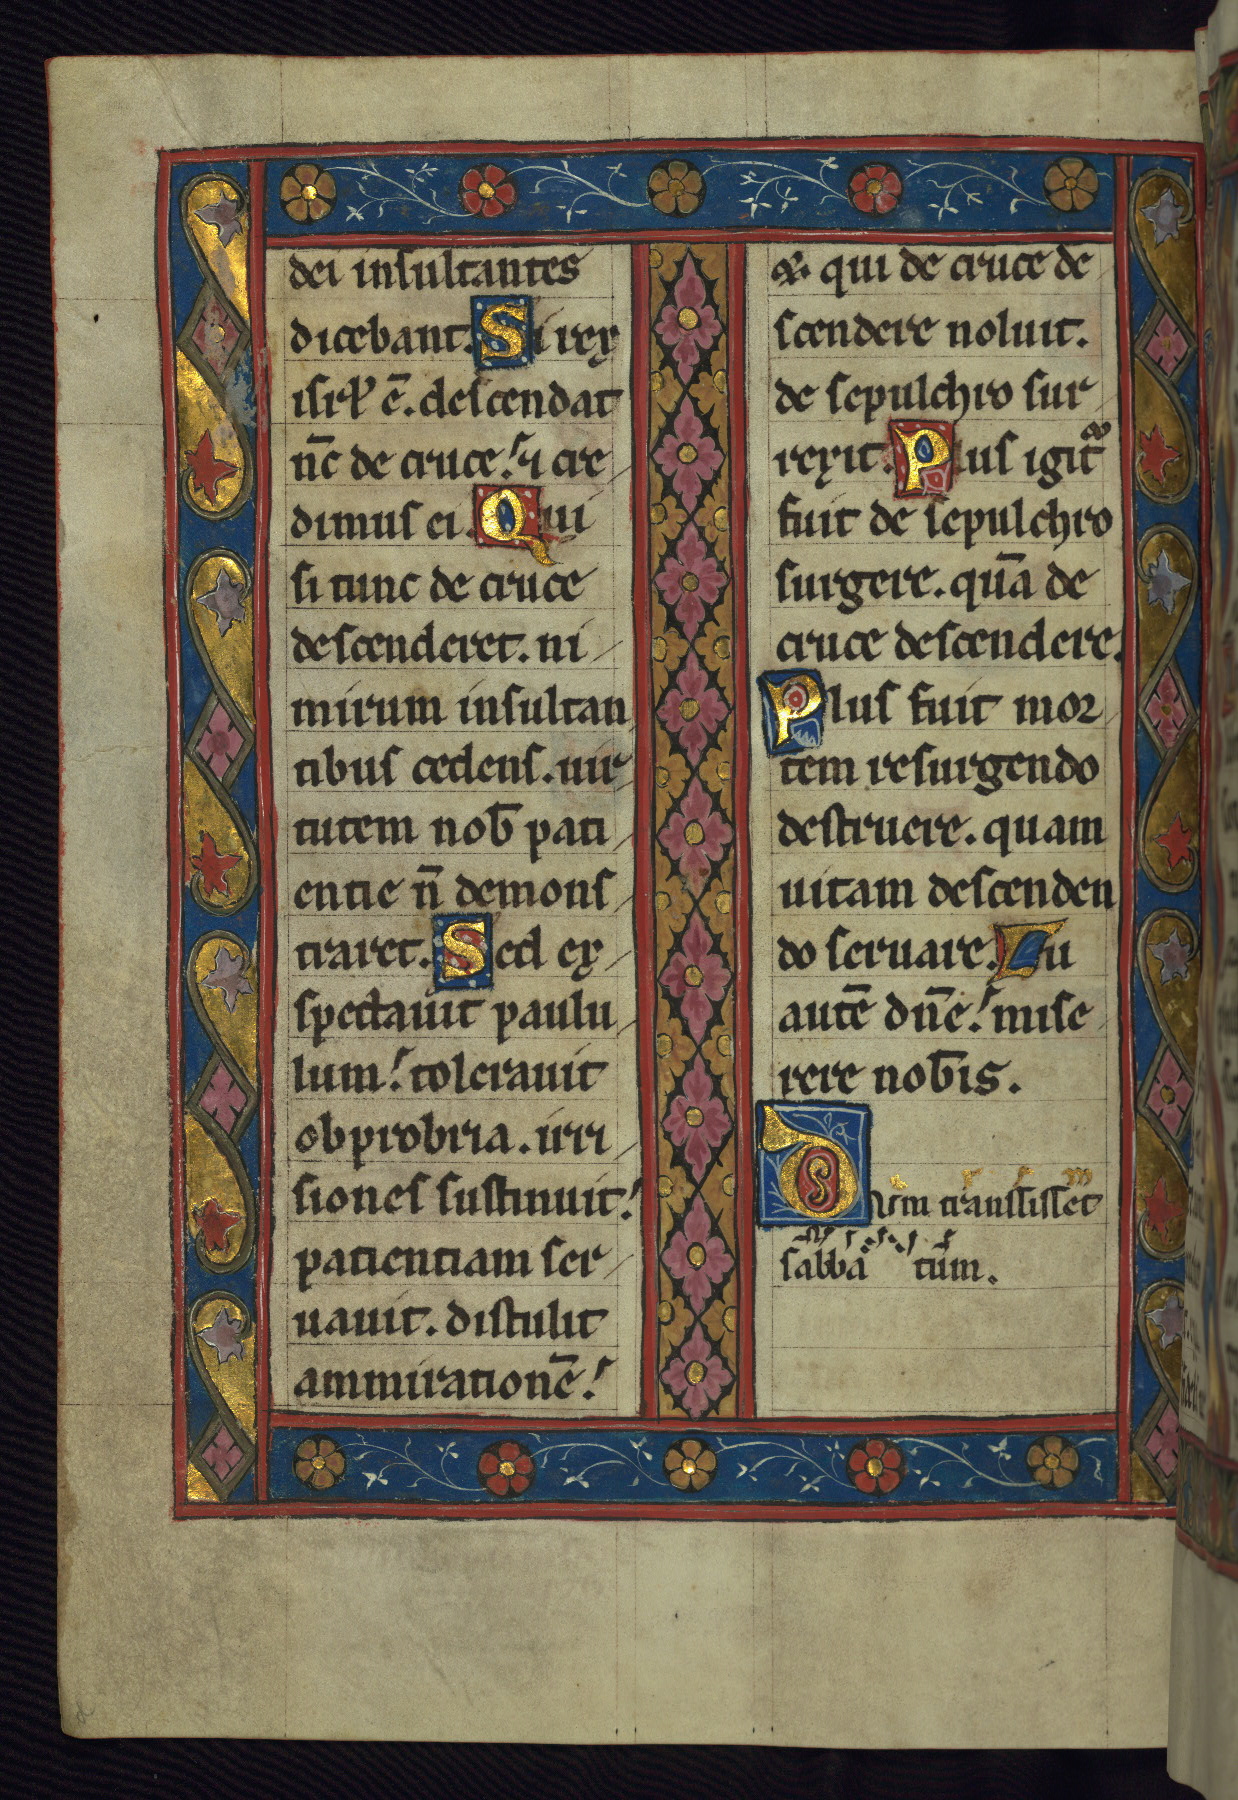 dei insultantes
dicebant. Si rex
isrł ē. descendat
nc̄ de cruce! ⁊ cre
dimus ei. Qui
si tunc de cruce
descenderet. ni
mirum insultan
tibus cedens. uir
tutem nob̄ pati
entie n̄ demons
traret. Sed ex
spectauit paulu
lum! tolerauit
obprobria. irri
siones sustinuit!
patientiam ser
uauit. distulit
ammirationē!
qui de cruce de
scendere noluit.
de sepulchro sur
rexit. Plus igit᷑
fuit de sepulchro
surgere. quā de
cruce descendere.
Plus fuit mor
tem resurgendo
destruere. quam
uitam descenden
do seruare. Tu
autē dn̄e! mise
rere nob̄is.
Dum transsisset
sabba tum.